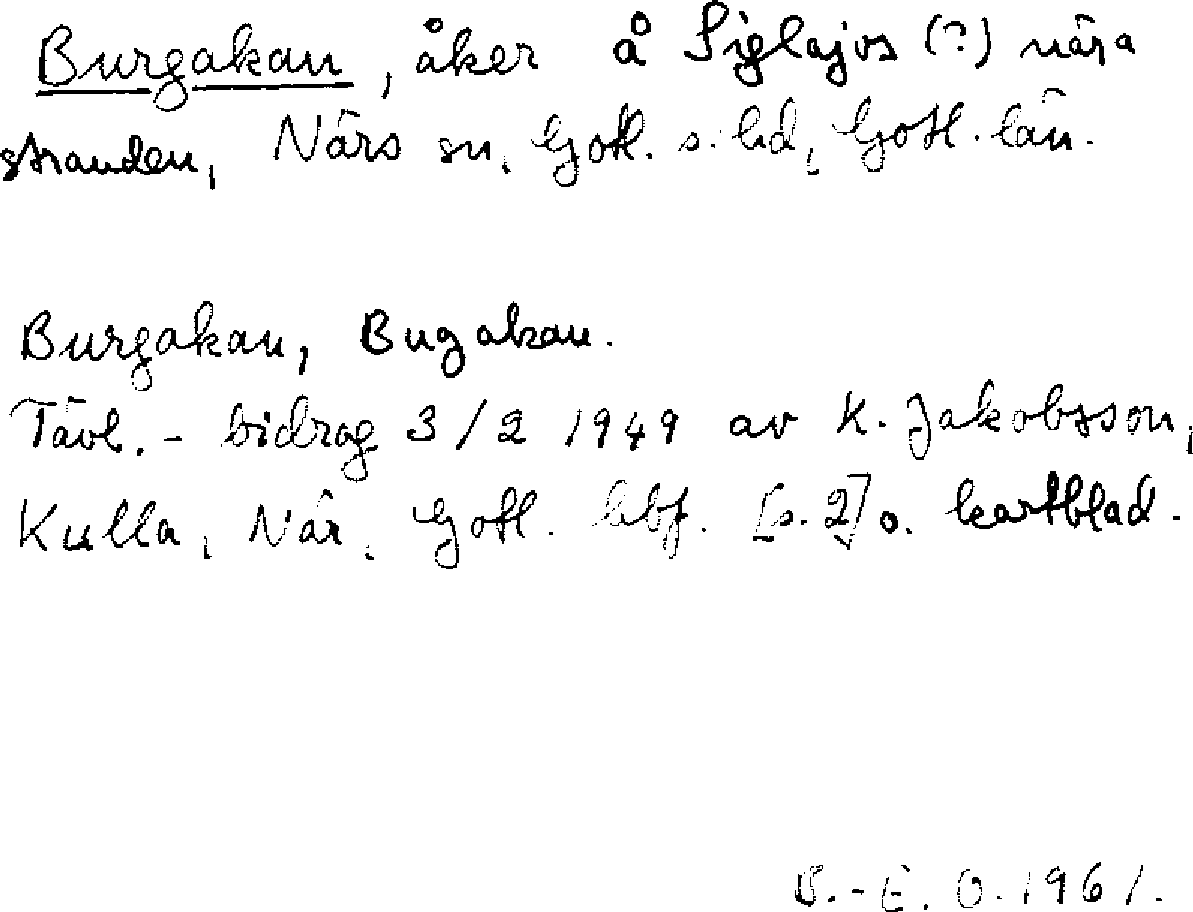 Burgakan, åker å Siglajvs (?) nära
stranden, Närs sn, Gotl. s. hd, Gotl. län.
Burgakan, Bugakan.
Tävl. - bidrag 3/2 1949 av K. Jakobsson,
Kulla, När, Gotl. hbf. [s. 2] o. kartblad.
B.-E. O. 1961.